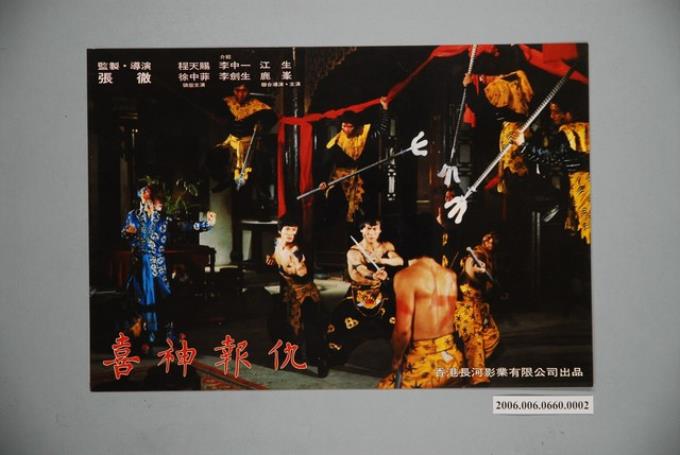 監製·導演
張 徹
程天賜
徐中菲
領銜主演
介紹
李中一 江 生
李劍生 鹿 峯
聯合導演·主演
喜神報仇
香港長河影業有限公司出品
2006.006.0660.0002